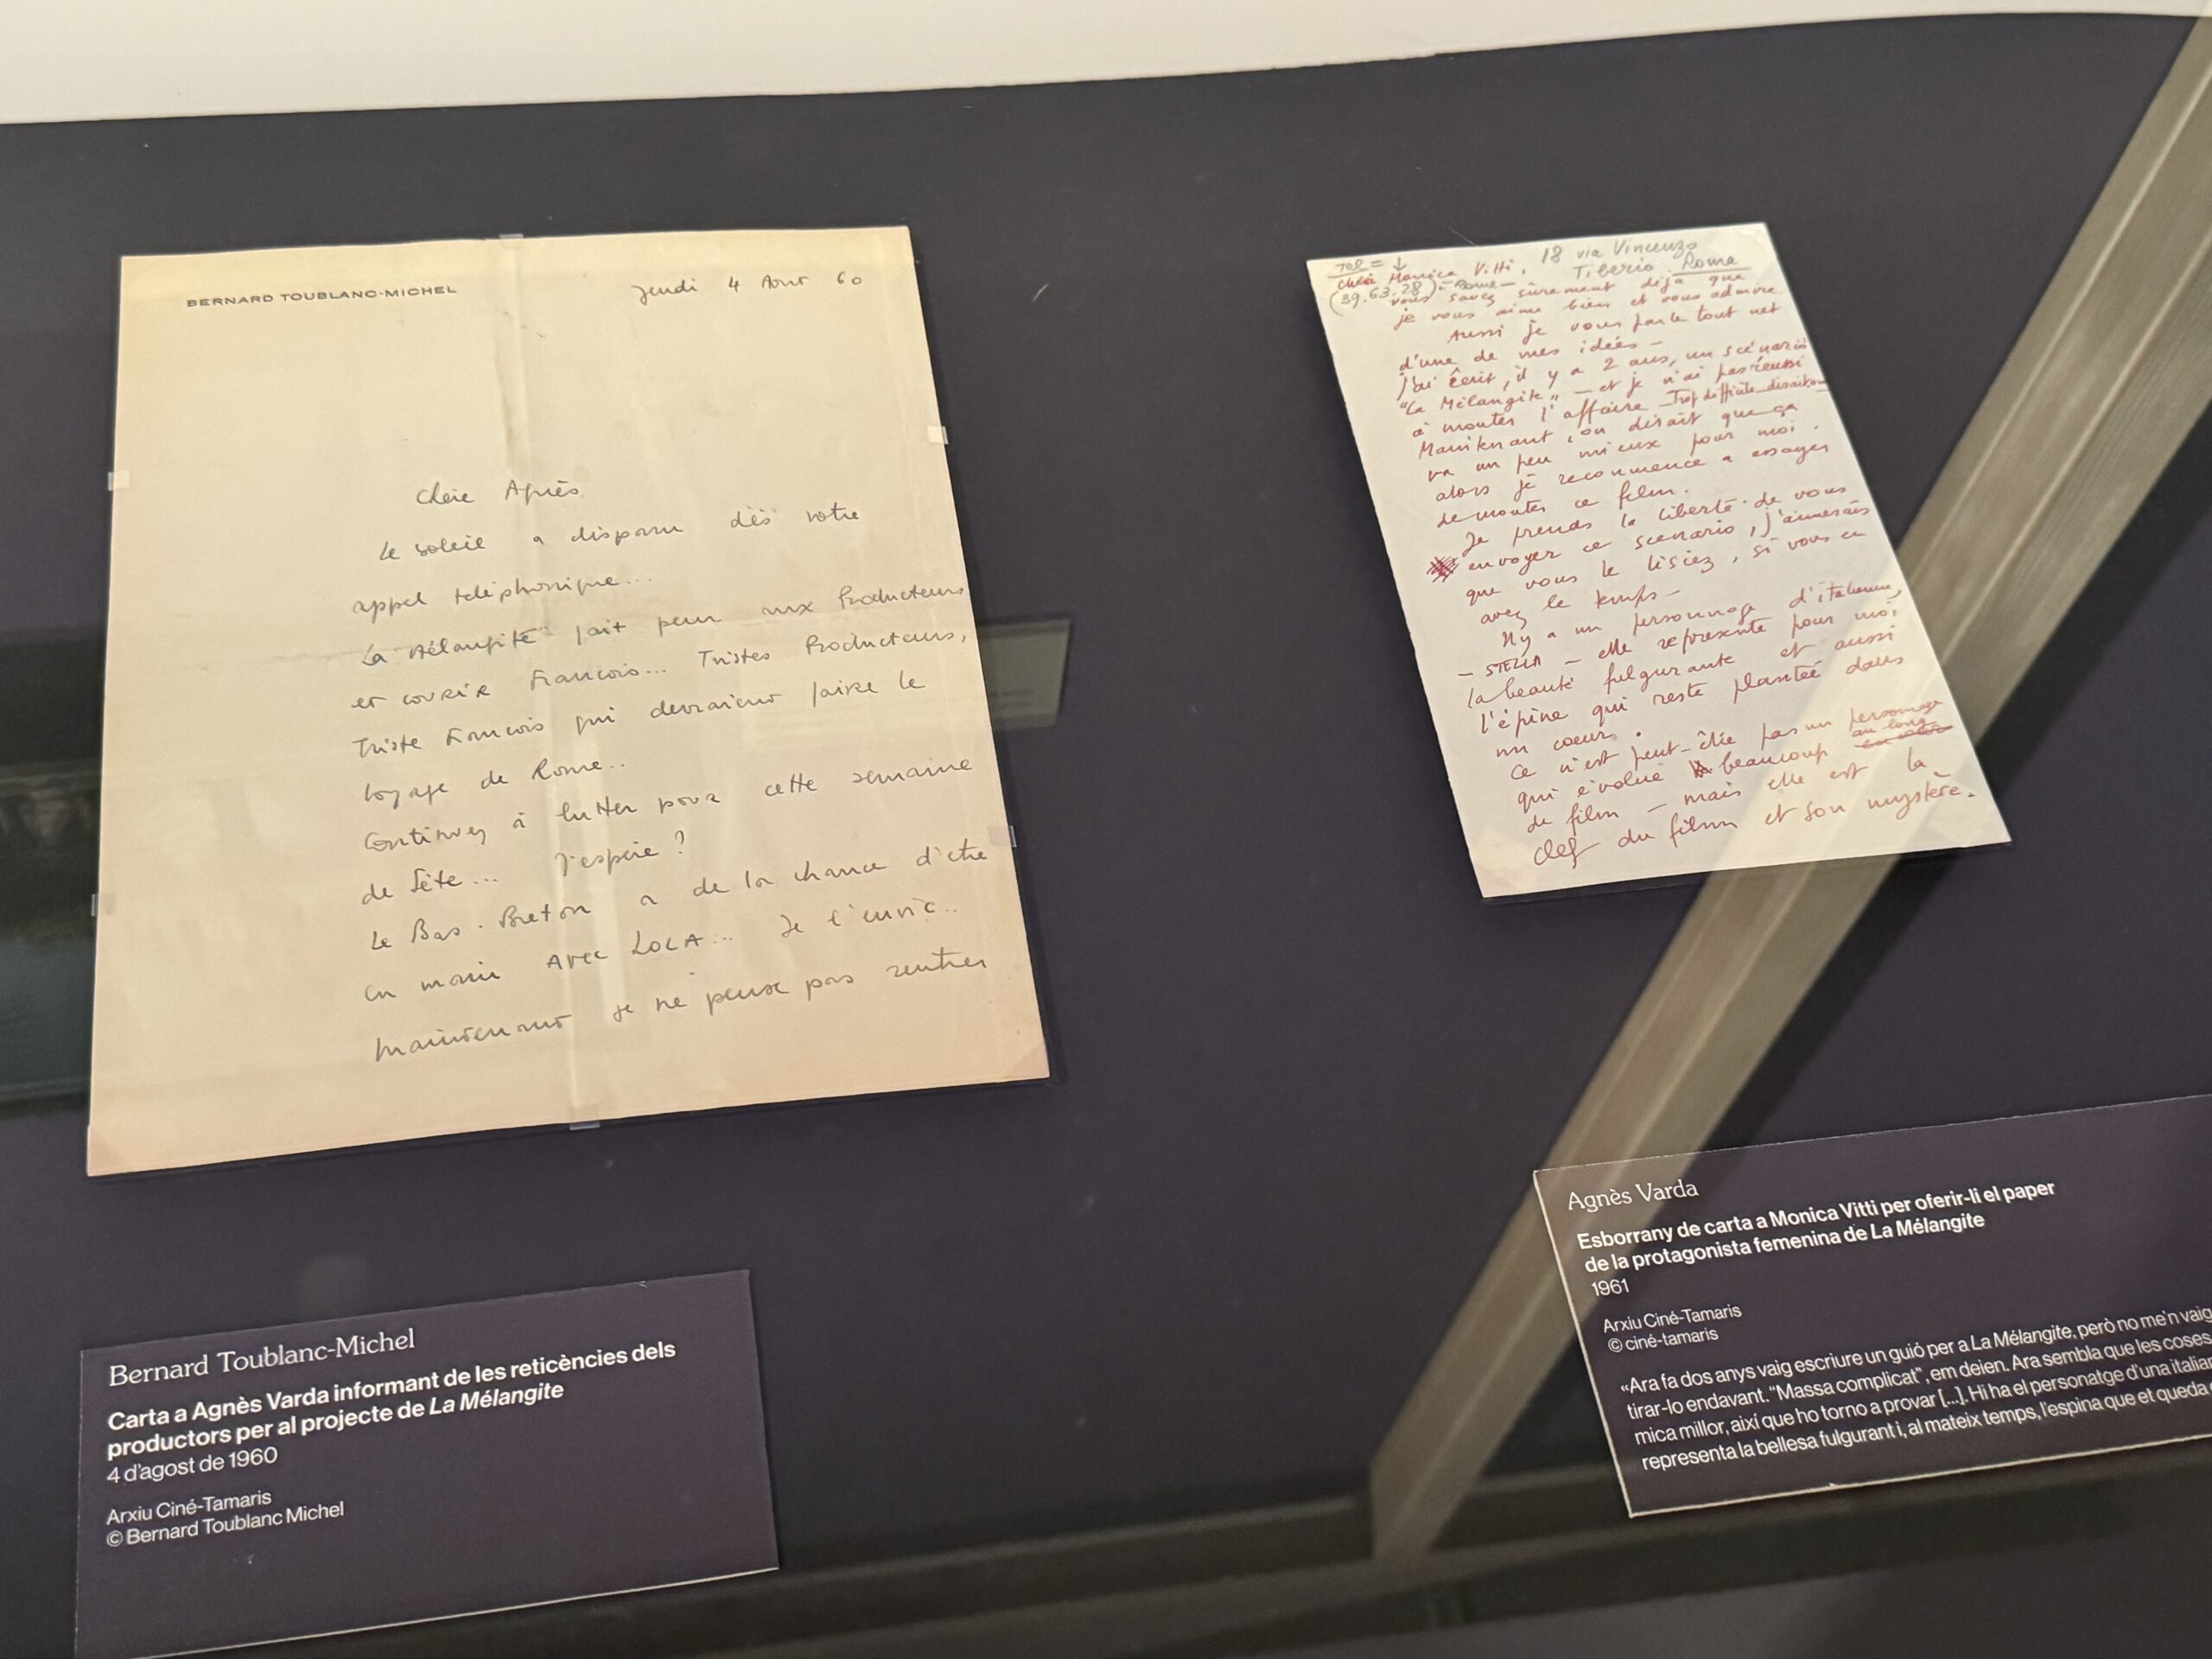 BERNARD TOUBLANC-MICHEL
Jeudi 4 Aout 60
Chère Agnès
Le soleil a disparu dès votre
appel téléphonique...
La Mélangite fait peur aux Producteurs
et courir François... Tristes Producteurs,
Triste François qui devraient faire le
voyage de Rome..
Continuez à lutter pour cette semaine
de Sète... J'espère ?
Le Bas-Breton a de la chance d'être
en main avec LOLA... Je l'envie..
Maintenant je ne pense pas rentrer
Bernard Toublanc-Michel
Carta a Agnès Varda informant de les reticències dels
productors per al projecte de La Mélangite
4 d'agost de 1960
Arxiu Ciné-Tamaris
© Bernard Toublanc Michel
18 via Vincenzo
Tel = ↓ Tiberio Roma
Chère Monica Vitti,
(39.63.28) = Rome —
vous savez sûrement déjà que
je vous aime bien et vous admire.
Aussi je vous parle tout net
d'une de mes idées —
J'ai écrit, il y a 2 ans, un scénario
"La Mélangite" — et je n'ai pas réussi
à monter l'affaire — Trop difficile disait-on —
Maintenant, on dirait que ça
va un peu mieux pour moi.
alors je recommence a essayer
de monter ce film.
Je prends la liberté de vous
envoyer ce scenario, j'aimerais
que vous le lisiez, si vous en
avez le temps —
Il y a un personnage d'italienne,
— STELLA — elle représente pour moi
la beauté fulgurante et aussi
l'épine qui reste plantée dans
un coeur.
Ce n'est peut-être pas un personnage
qui évolue beaucoup au long
de film — mais elle est la
clef du film et son mystère.
Agnès Varda
Esborrany de carta a Monica Vitti per oferir-li el paper
de la protagonista femenina de La Mélangite
1961
Arxiu Ciné-Tamaris
© ciné-tamaris
«Ara fa dos anys vaig escriure un guió per a La Mélangite, però no me'n vaig
tirar-lo endavant. "Massa complicat", em deien. Ara sembla que les coses
mica millor, així que ho torno a provar [...]. Hi ha el personatge d'una italian
representa la bellesa fulgurant i, al mateix temps, l'espina que et queda